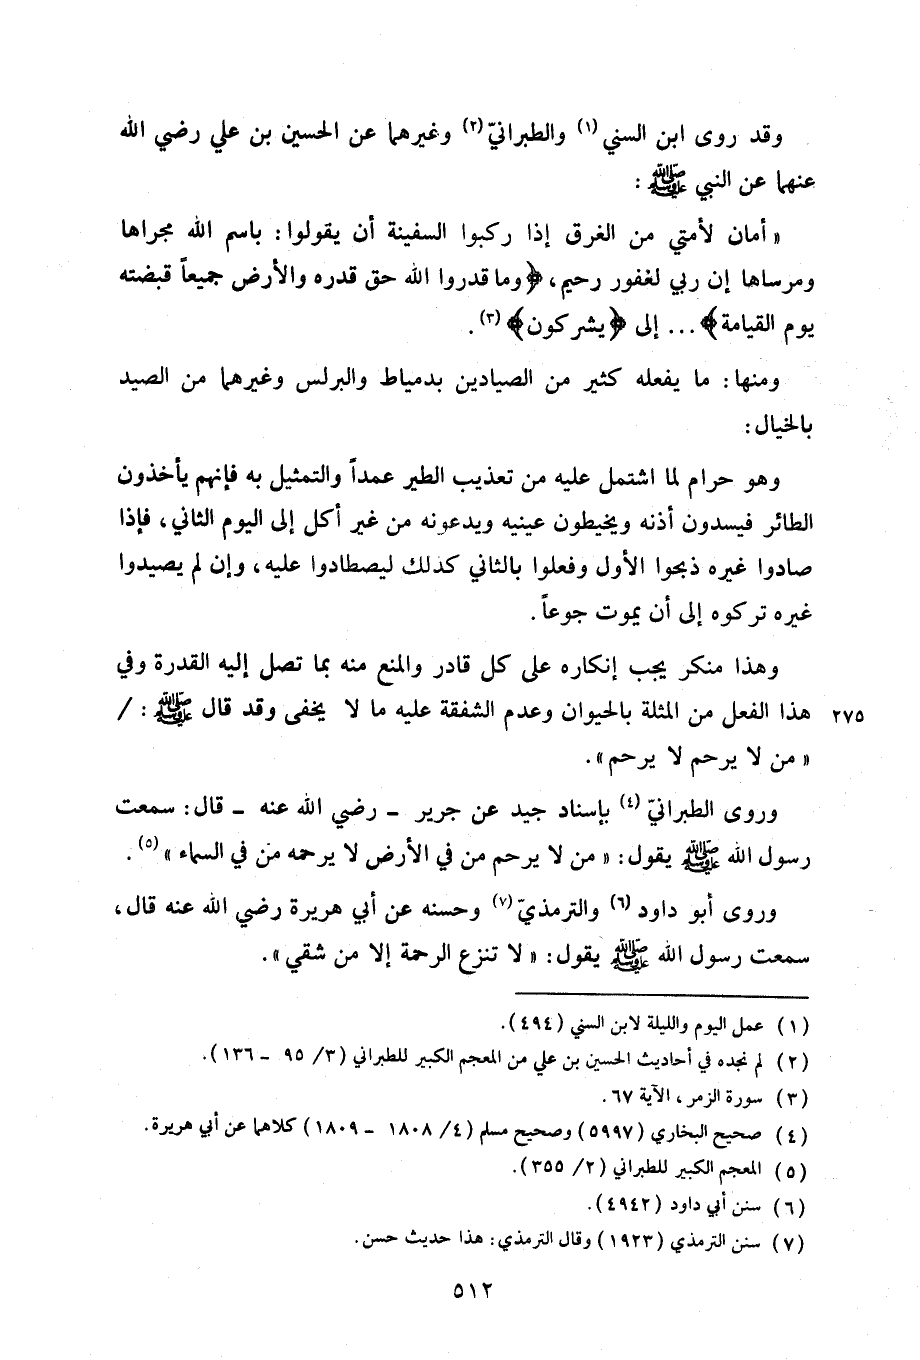 وقد روى ابن السني (١) والطبرانيّ (٢) وغيرهما عن الحسين بن علي رضي الله
عنهما عن النبي ﷺ :
« أمان لأمتي من الغرق إذا ركبوا السفينة أن يقولوا: باسم الله مجراها
ومرساها إن ربي لغفور رحيم، ﴿وما قدروا الله حق قدره والأرض جميعاً قبضته
يوم القيامة﴾ ... إلى ﴿يشركون﴾ (٣) .
ومنها: ما يفعله كثير من الصيادين بدمياط والبرلس وغيرهما من الصيد
بالخيال:
وهو حرام لما اشتمل عليه من تعذيب الطير عمداً والتمثيل به فإنهم يأخذون
الطائر فيسدون أذنه ويخيطون عينيه ويدعونه من غير أكل إلى اليوم الثاني، فإذا
صادوا غيره ذبحوا الأول وفعلوا بالثاني كذلك ليصطادوا عليه، وإن لم يصيدوا
غيره تركوه إلى أن يموت جوعاً.
وهذا منكر يجب إنكاره على كل قادر والمنع منه بما تصل إليه القدرة وفي
٢٧٥ هذا الفعل من المثلة بالحيوان وعدم الشفقة عليه ما لا يخفى وقد قال ﷺ : /
« من لا يرحم لا يرحم».
وروى الطبرانيّ (٤) بإسناد جيد عن جرير - رضي الله عنه - قال: سمعت
رسول الله ﷺ يقول: « من لا يرحم من في الأرض لا يرحمه من في السماء » (٥) .
وروى أبو داود (٦) والترمذيّ (٧) وحسنه عن أبي هريرة رضي الله عنه قال،
سمعت رسول الله ﷺ يقول: « لا تنزع الرحمة إلا من شقي».
(١) عمل اليوم والليلة لابن السني (٤٩٤).
(٢) لم نجده في أحاديث الحسين بن علي من المعجم الكبير للطبراني (٣/ ٩٥ - ١٣٦).
(٣) سورة الزمر، الآية ٦٧.
(٤) صحيح البخاري (٥٩٩٧) وصحيح مسلم (٤/ ١٨٠٨ - ١٨٠٩) كلاهما عن أبي هريرة.
(٥) المعجم الكبير للطبراني (٢/ ٣٥٥).
(٦) سنن أبي داود (٤٩٤٢).
(٧) سنن الترمذي (١٩٢٣) وقال الترمذي: هذا حديث حسن.
٥١٢